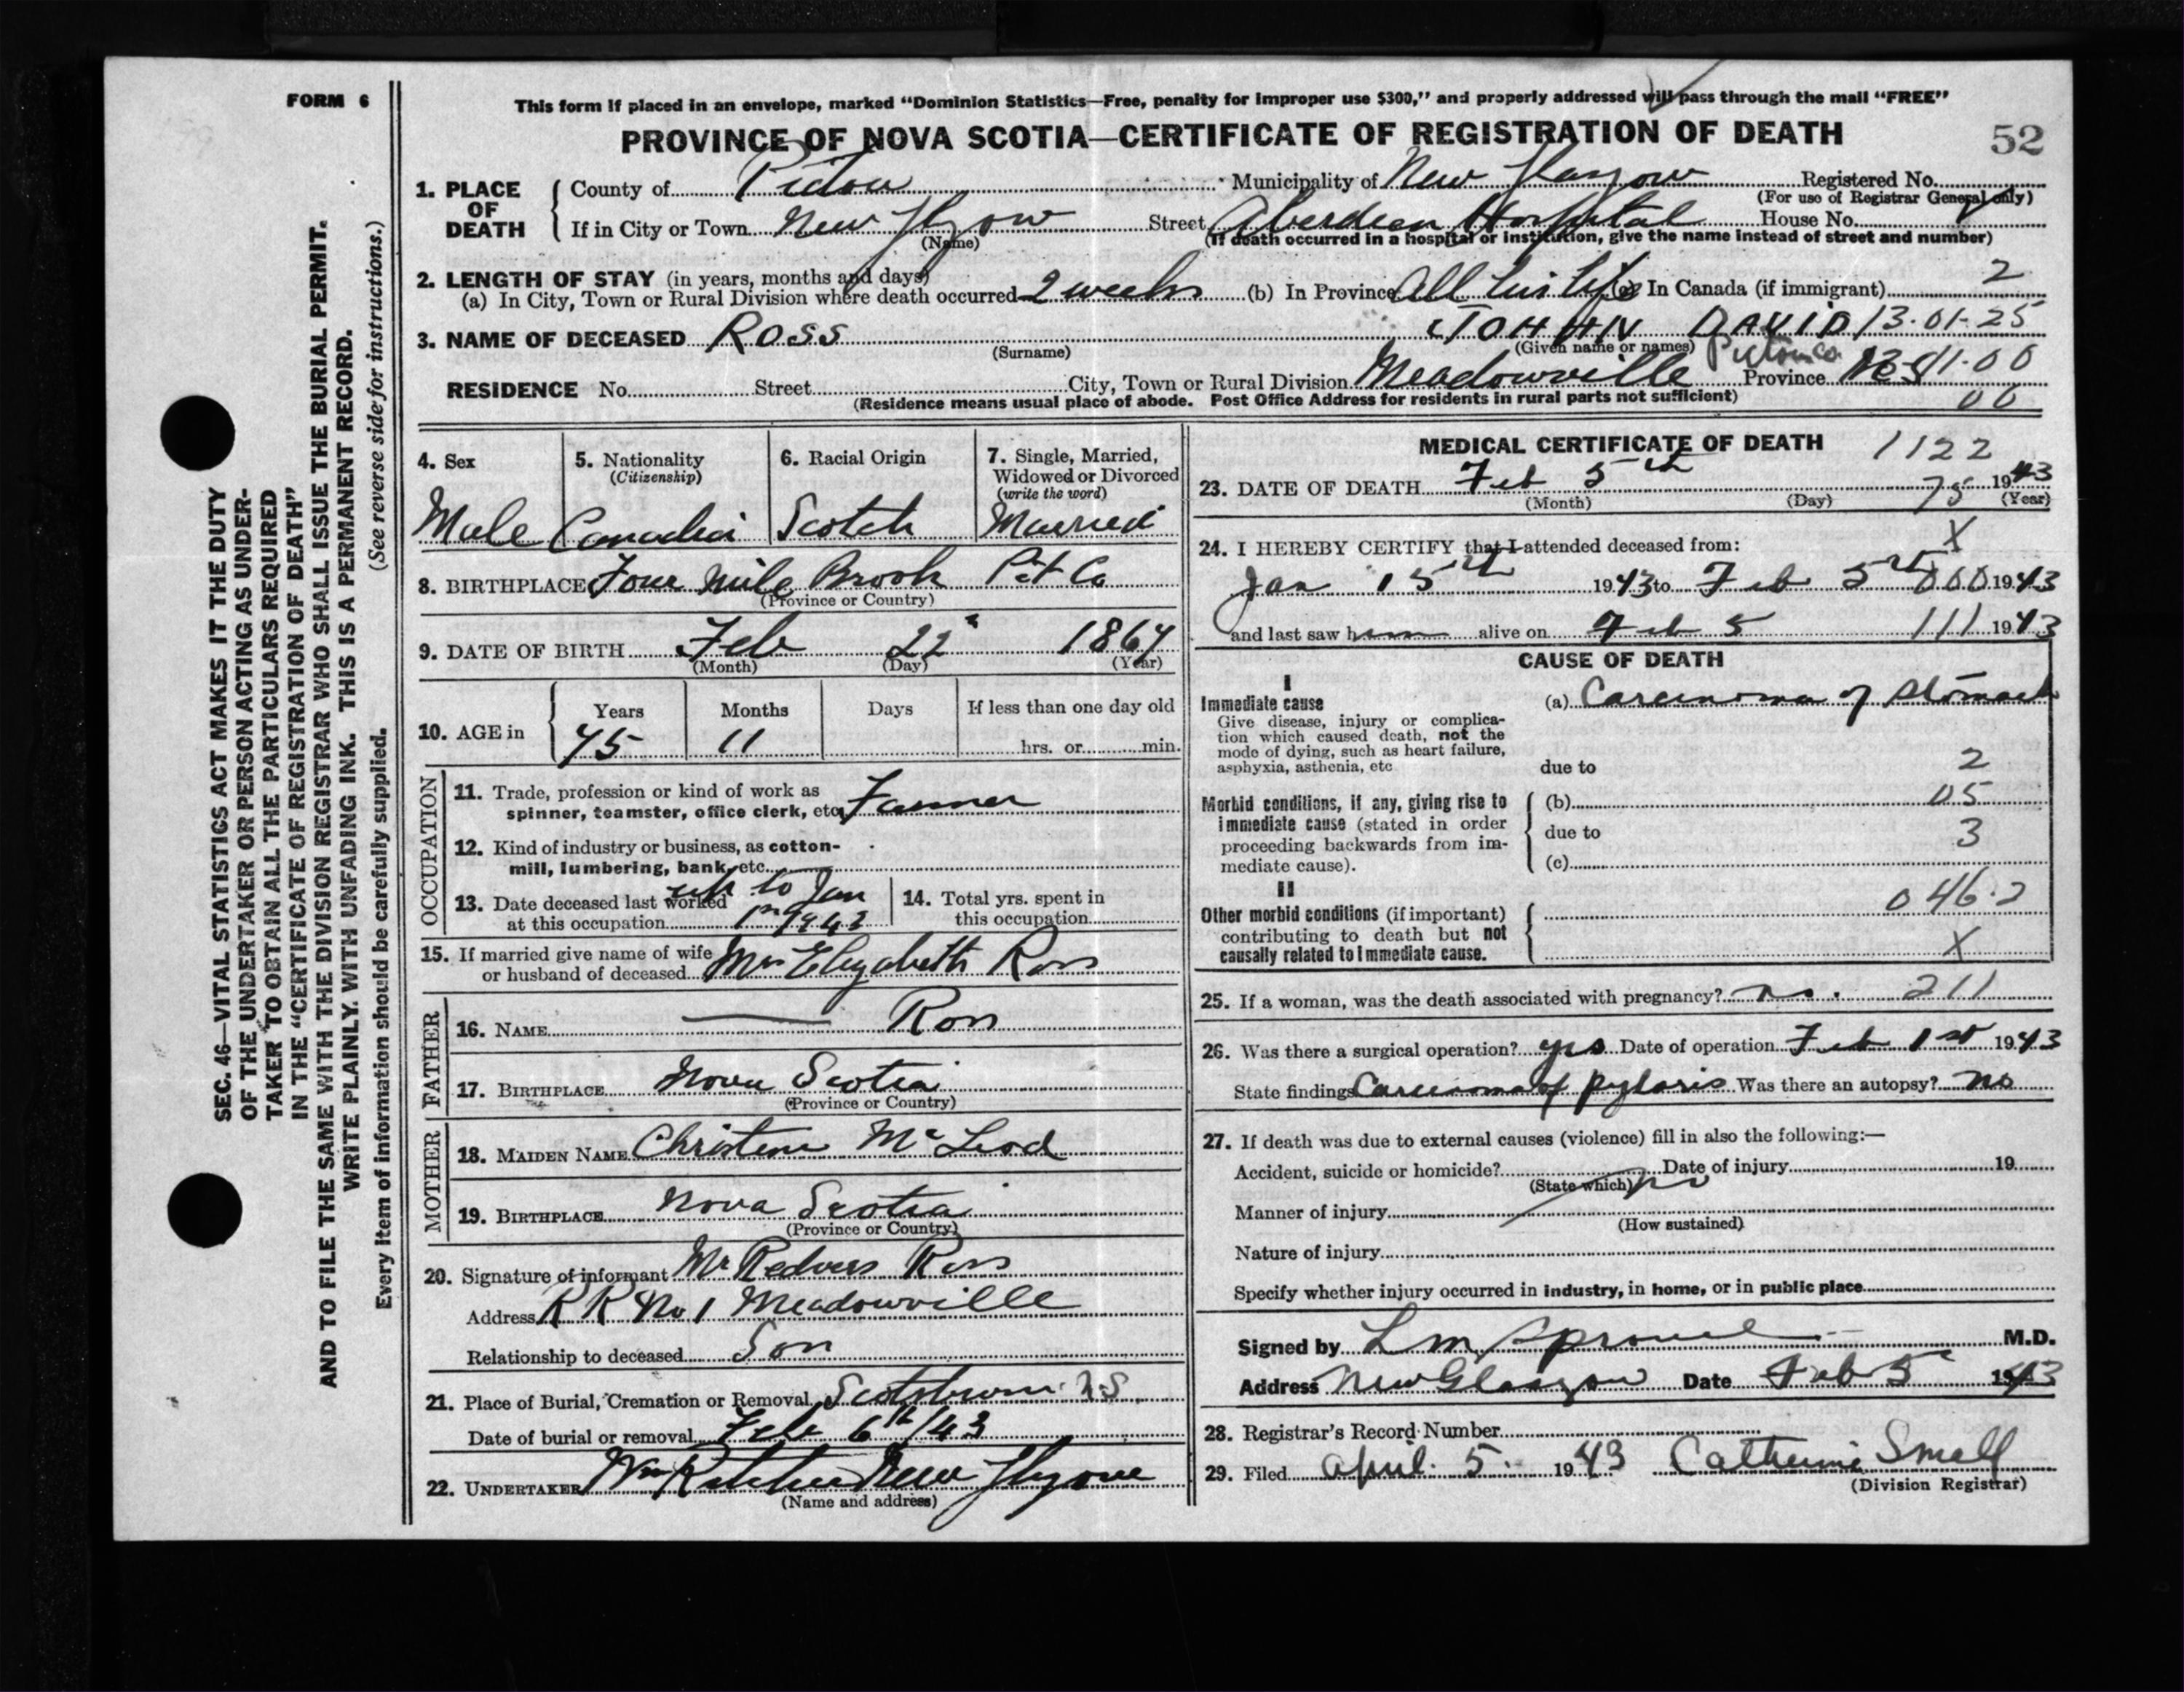 FORM 6
This form if placed in an envelope, marked "Dominion Statistics—Free, penalty for improper use $300," and properly addressed will pass through the mail "FREE"
PROVINCE OF NOVA SCOTIA—CERTIFICATE OF REGISTRATION OF DEATH
52
SEC. 46—VITAL STATISTICS ACT MAKES IT THE DUTY
OF THE UNDERTAKER OR PERSON ACTING AS UNDER-
TAKER TO OBTAIN ALL THE PARTICULARS REQUIRED
IN THE "CERTIFICATE OF REGISTRATION OF DEATH"
AND TO FILE THE SAME WITH THE DIVISION REGISTRAR WHO SHALL ISSUE THE BURIAL PERMIT.
WRITE PLAINLY. WITH UNFADING INK. THIS IS A PERMANENT RECORD.
Every item of information should be carefully supplied. (See reverse side for instructions.)
1. PLACE OF DEATH
County of Pictou Municipality of New Glasgow Registered No.
(For use of Registrar General only)
If in City or Town New Glgow Street Aberdeen Hospital House No.
(Name) (If death occurred in a hospital or institution, give the name instead of street and number)
2. LENGTH OF STAY (in years, months and days)
(a) In City, Town or Rural Division where death occurred 2 weeks (b) In Province All his life (c) In Canada (if immigrant) 2
3. NAME OF DECEASED Ross JOHN DAVID 13-01-25
(Surname) (Given name or names)
RESIDENCE No. Street City, Town or Rural Division Meadowville Pictou Co. Province N S 13-01-00
(Residence means usual place of abode. Post Office Address for residents in rural parts not sufficient) 00
4. Sex
Male
5. Nationality
(Citizenship)
Canadia
6. Racial Origin
Scotch
7. Single, Married,
Widowed or Divorced
(write the word)
Married
8. BIRTHPLACE Four Mile Brook Pict Co
(Province or Country)
9. DATE OF BIRTH Feb 22 1867
(Month) (Day) (Year)
10. AGE in
Years Months Days If less than one day old
75 11 hrs. or min.
OCCUPATION
11. Trade, profession or kind of work as
spinner, teamster, office clerk, etc. Farmer
12. Kind of industry or business, as cotton-
mill, lumbering, bank, etc.
13. Date deceased last worked up to Jan
at this occupation 1st 1943
14. Total yrs. spent in
this occupation
15. If married give name of wife
or husband of deceased Mrs Elizabeth Ross
FATHER
16. NAME — Ross
17. BIRTHPLACE Nova Scotia
(Province or Country)
MOTHER
18. MAIDEN NAME Christene McLeod
19. BIRTHPLACE Nova Scotia
(Province or Country)
20. Signature of informant Mr Redvers Ross
Address R R No 1 Meadowville
Relationship to deceased Son
21. Place of Burial, Cremation or Removal Scotsburn N S
Date of burial or removal Feb 6th/43
22. UNDERTAKER Wm New Glgow
(Name and address)
MEDICAL CERTIFICATE OF DEATH 1122
23. DATE OF DEATH Feb 5th 1943
(Month) (Day) (Year)
75
X
24. I HEREBY CERTIFY that I attended deceased from:
Jan 15th 1943 to Feb 5th 000 1943
and last saw him alive on Feb 5 111 1943
CAUSE OF DEATH
I
Immediate cause
Give disease, injury or complica-
tion which caused death, not the
mode of dying, such as heart failure,
asphyxia, asthenia, etc
(a) Carcinoma of stomach
due to 2
Morbid conditions, if any, giving rise to
immediate cause (stated in order
proceeding backwards from im-
mediate cause).
(b) 05
due to 3
(c)
II
Other morbid conditions (if important)
contributing to death but not
causally related to immediate cause.
046.2
X
25. If a woman, was the death associated with pregnancy? no. 211
26. Was there a surgical operation? yes Date of operation Feb 1st 1943
State findings Carcinoma of pyloris Was there an autopsy? no
27. If death was due to external causes (violence) fill in also the following:—
Accident, suicide or homicide? Date of injury 19
(State which) no
Manner of injury
(How sustained)
Nature of injury
Specify whether injury occurred in industry, in home, or in public place
Signed by L M Sproul M.D.
Address New Glasgow Date Feb 5 1943
28. Registrar's Record Number
29. Filed April 5. 1943 Catherine Small
(Division Registrar)